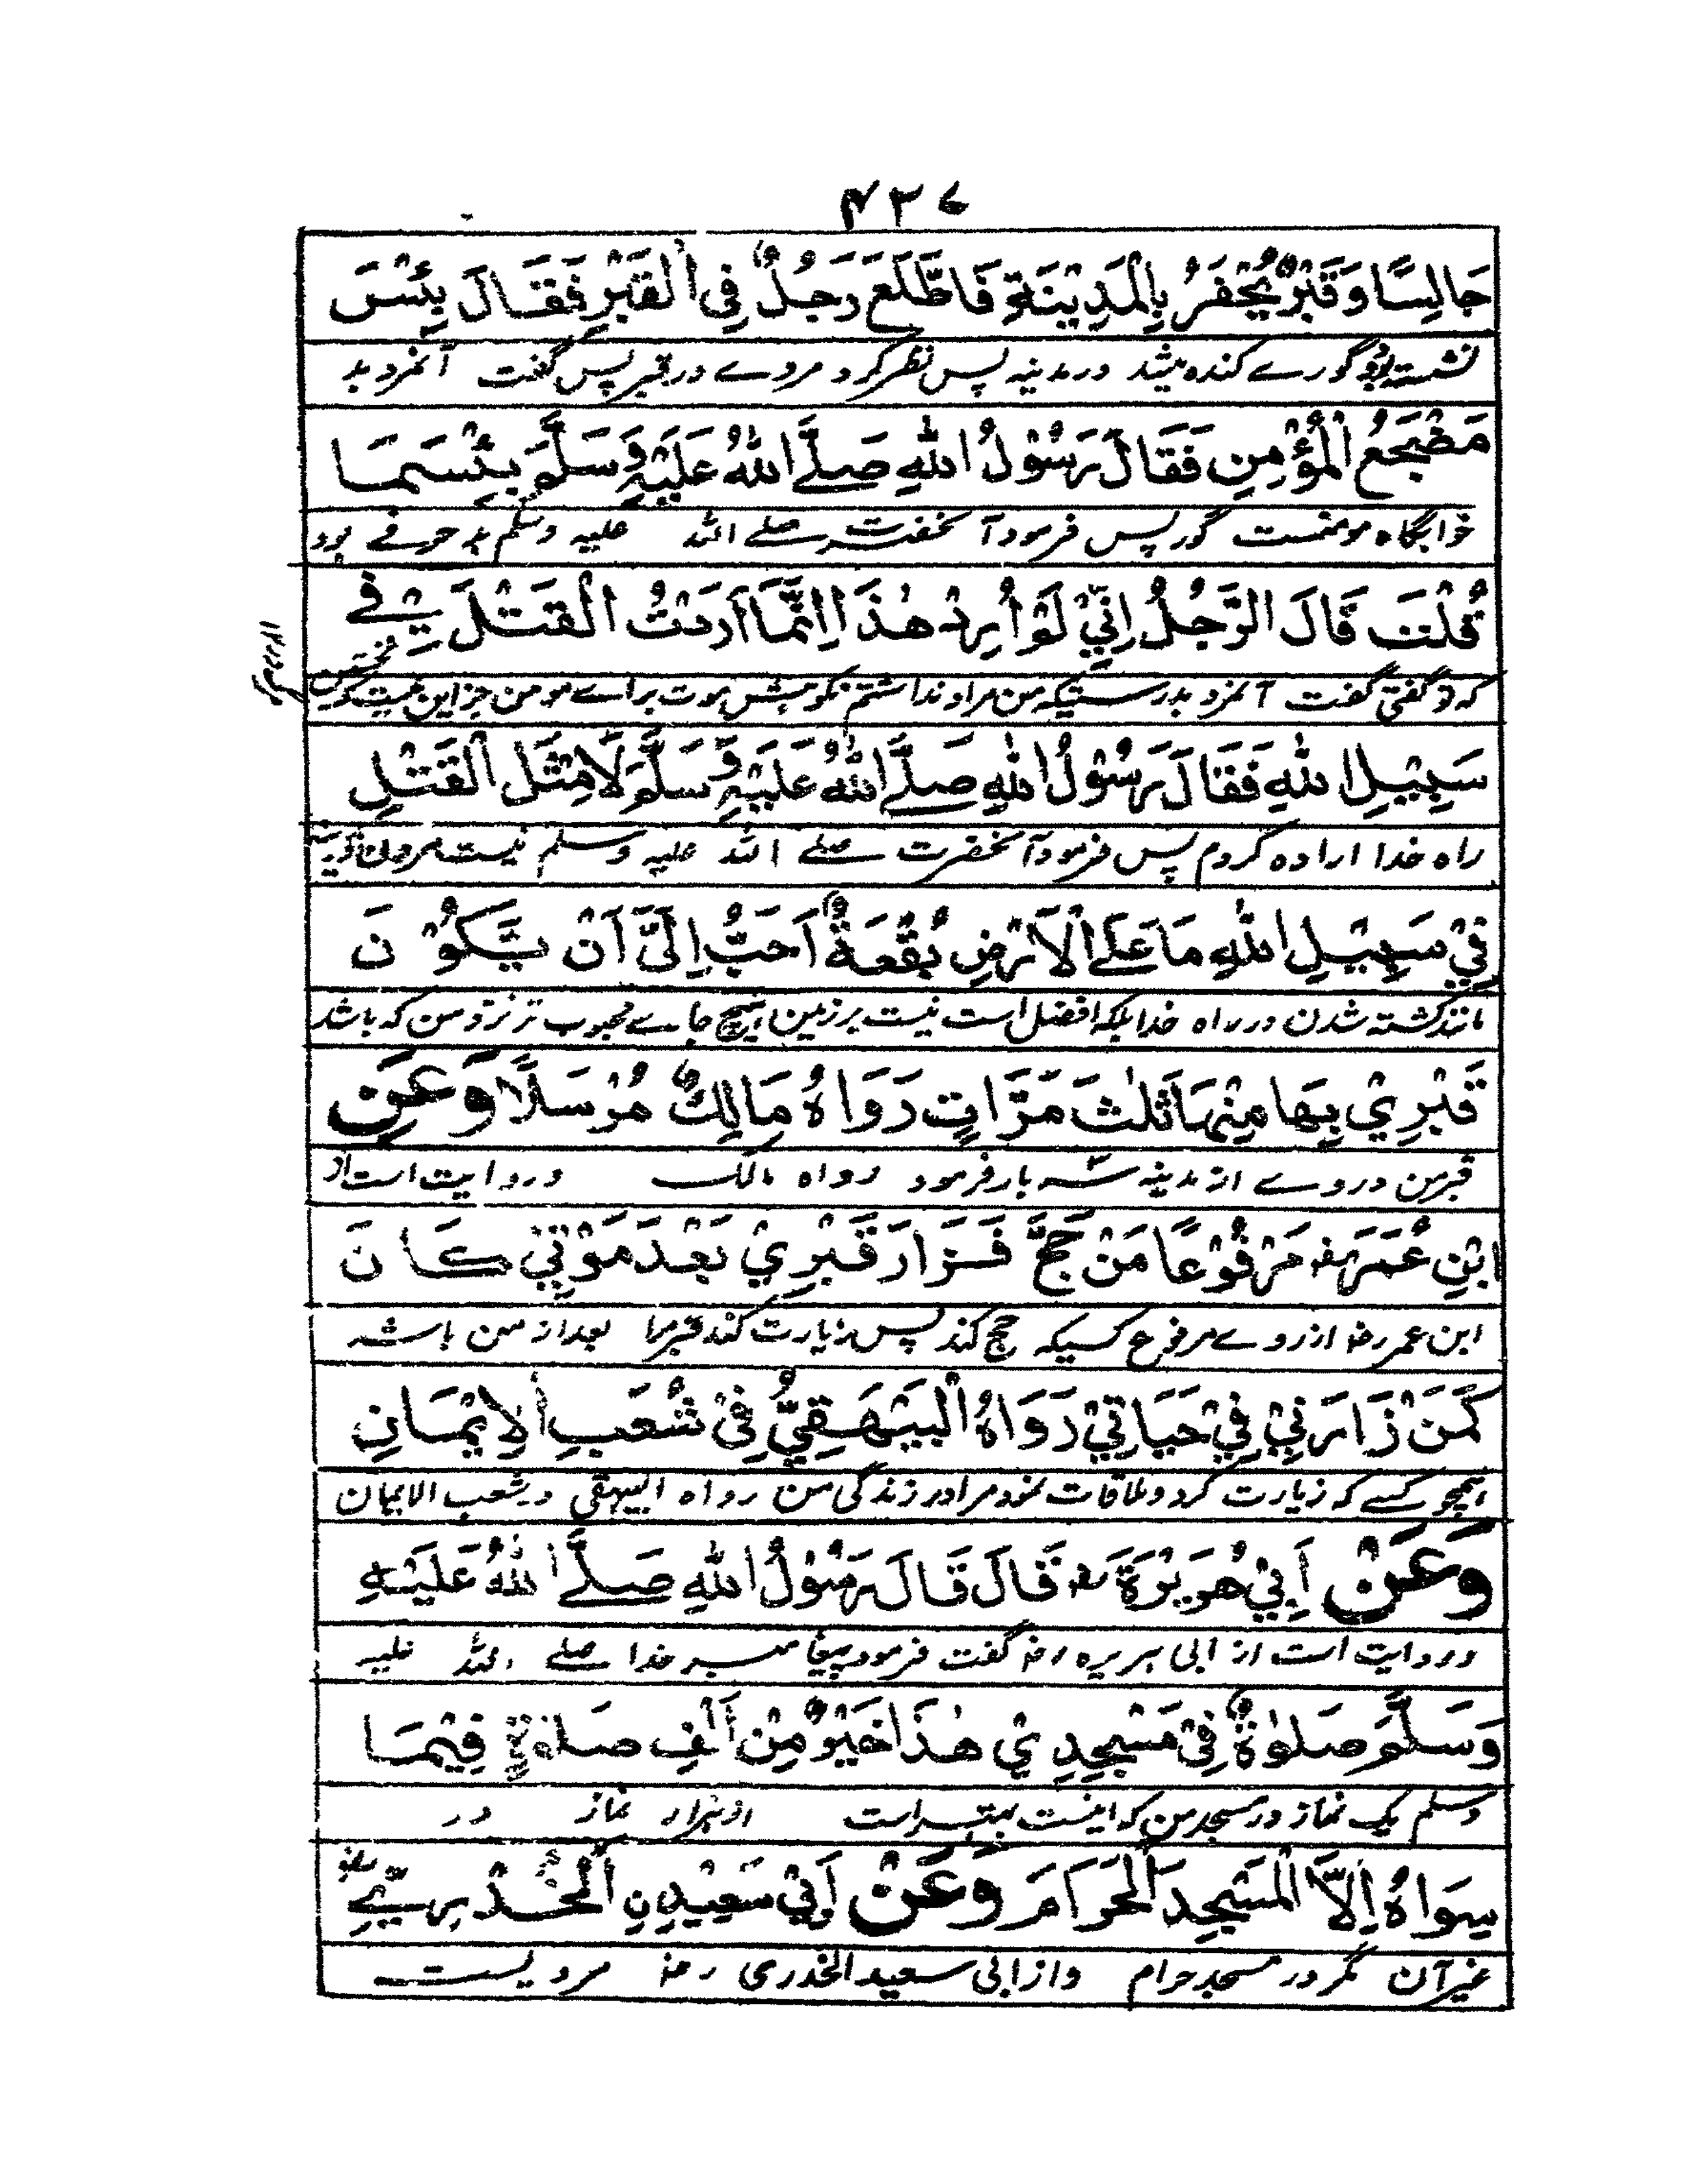 ۴۲۷
جَالِسًا وَقَبْرٌ يُحْفَرُ بِالْمَدِيْنَةِ فَاطَّلَعَ رَجُلٌ فِي الْقَبْرِ فَقَالَ بِئْسَ
نشسته بود گورے کنده میشد در مدینه پس نظر کرد مردے در قبر پس گفت آنمرد بد
مَضْجَعُ الْمُؤْمِنِ فَقَالَ رَسُوْلُ اللهِ صَلَّے اللهُ عَلَيْهِ وَسَلَّمَ بِئْسَمَا
خوابگاه مومنست گور پس فرمود آنحضرت صلے الله علیه وسلم بد حرفے بود
قُلْتَ قَالَ الرَّجُلُ اِنِّيْ لَوْ اُرِدْ هٰذَا اِنَّمَا اَرَدْتُ الْقَتْلَ فِے
که تو گفتی گفت آنمرد بدرستیکه من مراد نداشتم نکوهش موت براے مومن جز این نیست که
سَبِيْلِ اللهِ فَقَالَ رَسُوْلُ اللهِ صَلَّے اللهُ عَلَيْهِ وَسَلَّمَ لَا مِثْلَ الْقَتْلِ
راه خدا اراده کردم پس فرمود آنحضرت صلے الله علیه وسلم نیست مردن
فِيْ سَبِيْلِ اللهِ مَا عَلَے الْاَرْضِ بُقْعَةٌ اَحَبُّ اِلَىَّ اَنْ يَّكُوْنَ
مانند کشته شدن در راه خدا بلکه افضل است نیست بر زمین هیچ جاے محبوب تر نزد من که باشد
قَبْرِيْ بِهَا مِنْهَا ثَلٰثَ مَرَّاتٍ رَوَاهُ مَالِكٌ مُرْسَلًا وَعَنِ
قبر من در وے از مدینه سه بار فرمود رواه مالک و روایت است از
ابْنِ عُمَرَ رض مَرْفُوْعًا مَنْ حَجَّ فَزَارَ قَبْرِيْ بَعْدَ مَوْتِيْ كَانَ
ابن عمر رض از روے مرفوع کسیکه حج کند پس زیارت کند قبر مرا بعد از من باشد
كَمَنْ زَارَنِيْ فِيْ حَيَاتِيْ رَوَاهُ الْبَيْهَقِيُّ فِيْ شُعَبِ الْاِيْمَانِ
همچو کسے که زیارت کرد و ملاقات نمود مرا در زندگی من رواه البیهقی در شعب الایمان
وَعَنْ اَبِيْ هُرَيْرَةَ رض قَالَ قَالَ رَسُوْلُ اللهِ صَلَّے اللهُ عَلَيْهِ
و روایت است از ابی هریره رض گفت فرمود پیغامبر خدا صلے الله علیه
وَسَلَّمَ صَلٰوةٌ فِيْ مَسْجِدِيْ هٰذَا خَيْرٌ مِنْ اَلْفِ صَلٰوةٍ فِيْمَا
وسلم یک نماز در مسجد من که اینست بهتر است از هزار نماز در
سِوَاهُ اِلَّا الْمَسْجِدَ الْحَرَامَ وَعَنْ اَبِيْ سَعِيْدِنِ الْخُدْرِيِّ رض
غیر آن مگر در مسجد حرام و از ابی سعید الخدری رض مرویست